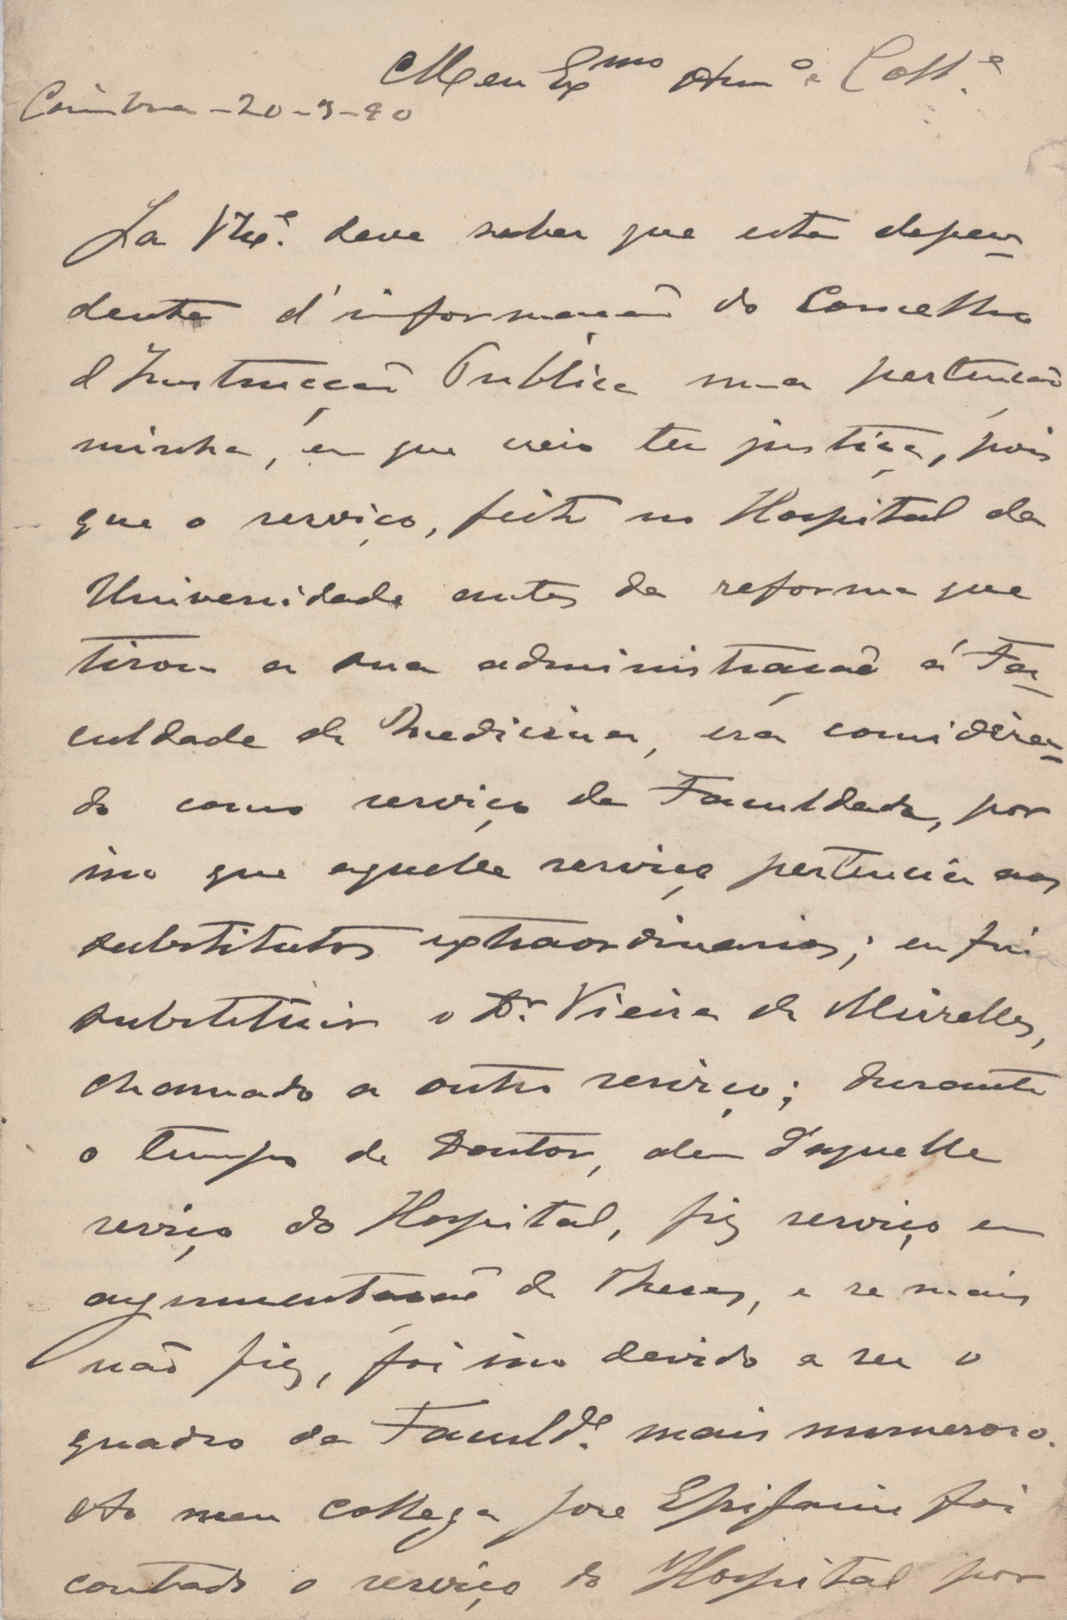 Meu Ex.mo Am.o e Coll.e
Coimbra - 20-3-90
Ja V. Ex.ª deve saber que está depen-
dente d'informação do Concelho
d'Instrucção Publica uma pertenção
minha, em que creio ter justiça, pois
que o serviço, feito no Hospital da
Universidade antes da reforma que
tirou a sua administração á Fa-
culdade de Medicina, era considera-
do como serviço da Faculdade, por
isso que aquelle serviço pertencia aos
substitutos extraordinarios; eu fui
substituir o Dr. Vieira de Meirelles,
chamado a outro serviço; durante
o tempo de Doutor, alem d'aquelle
serviço do Hospital, fiz serviço em
argumentação de Theses, e se mais
não fiz, foi isso devido a ser o
quadro da Faculd.e mais numeroso.
Ao meu collega José Epifanio foi
contado o serviço do Hospital por